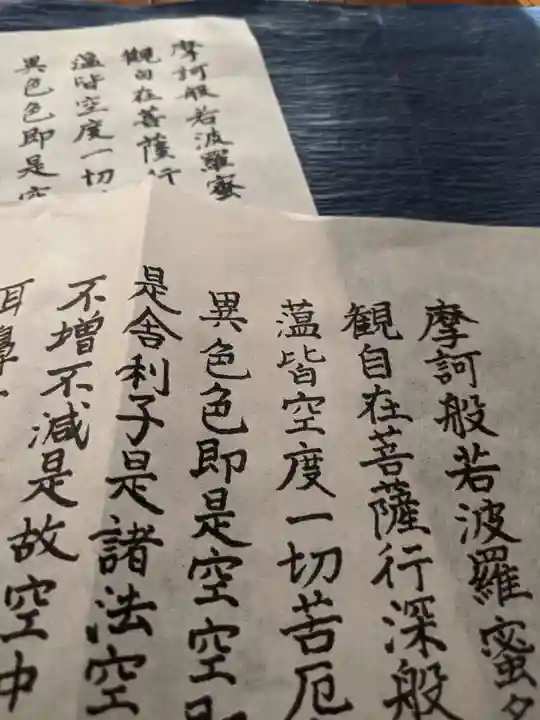 摩訶般若波羅蜜多
観自在菩薩行深般
蘊皆空度一切苦厄
異色色即是空空即
是舎利子是諸法空
不増不減是故空中
耳鼻
摩訶般若波羅蜜
観自在菩薩行
蘊皆空度一切
異色色即是空